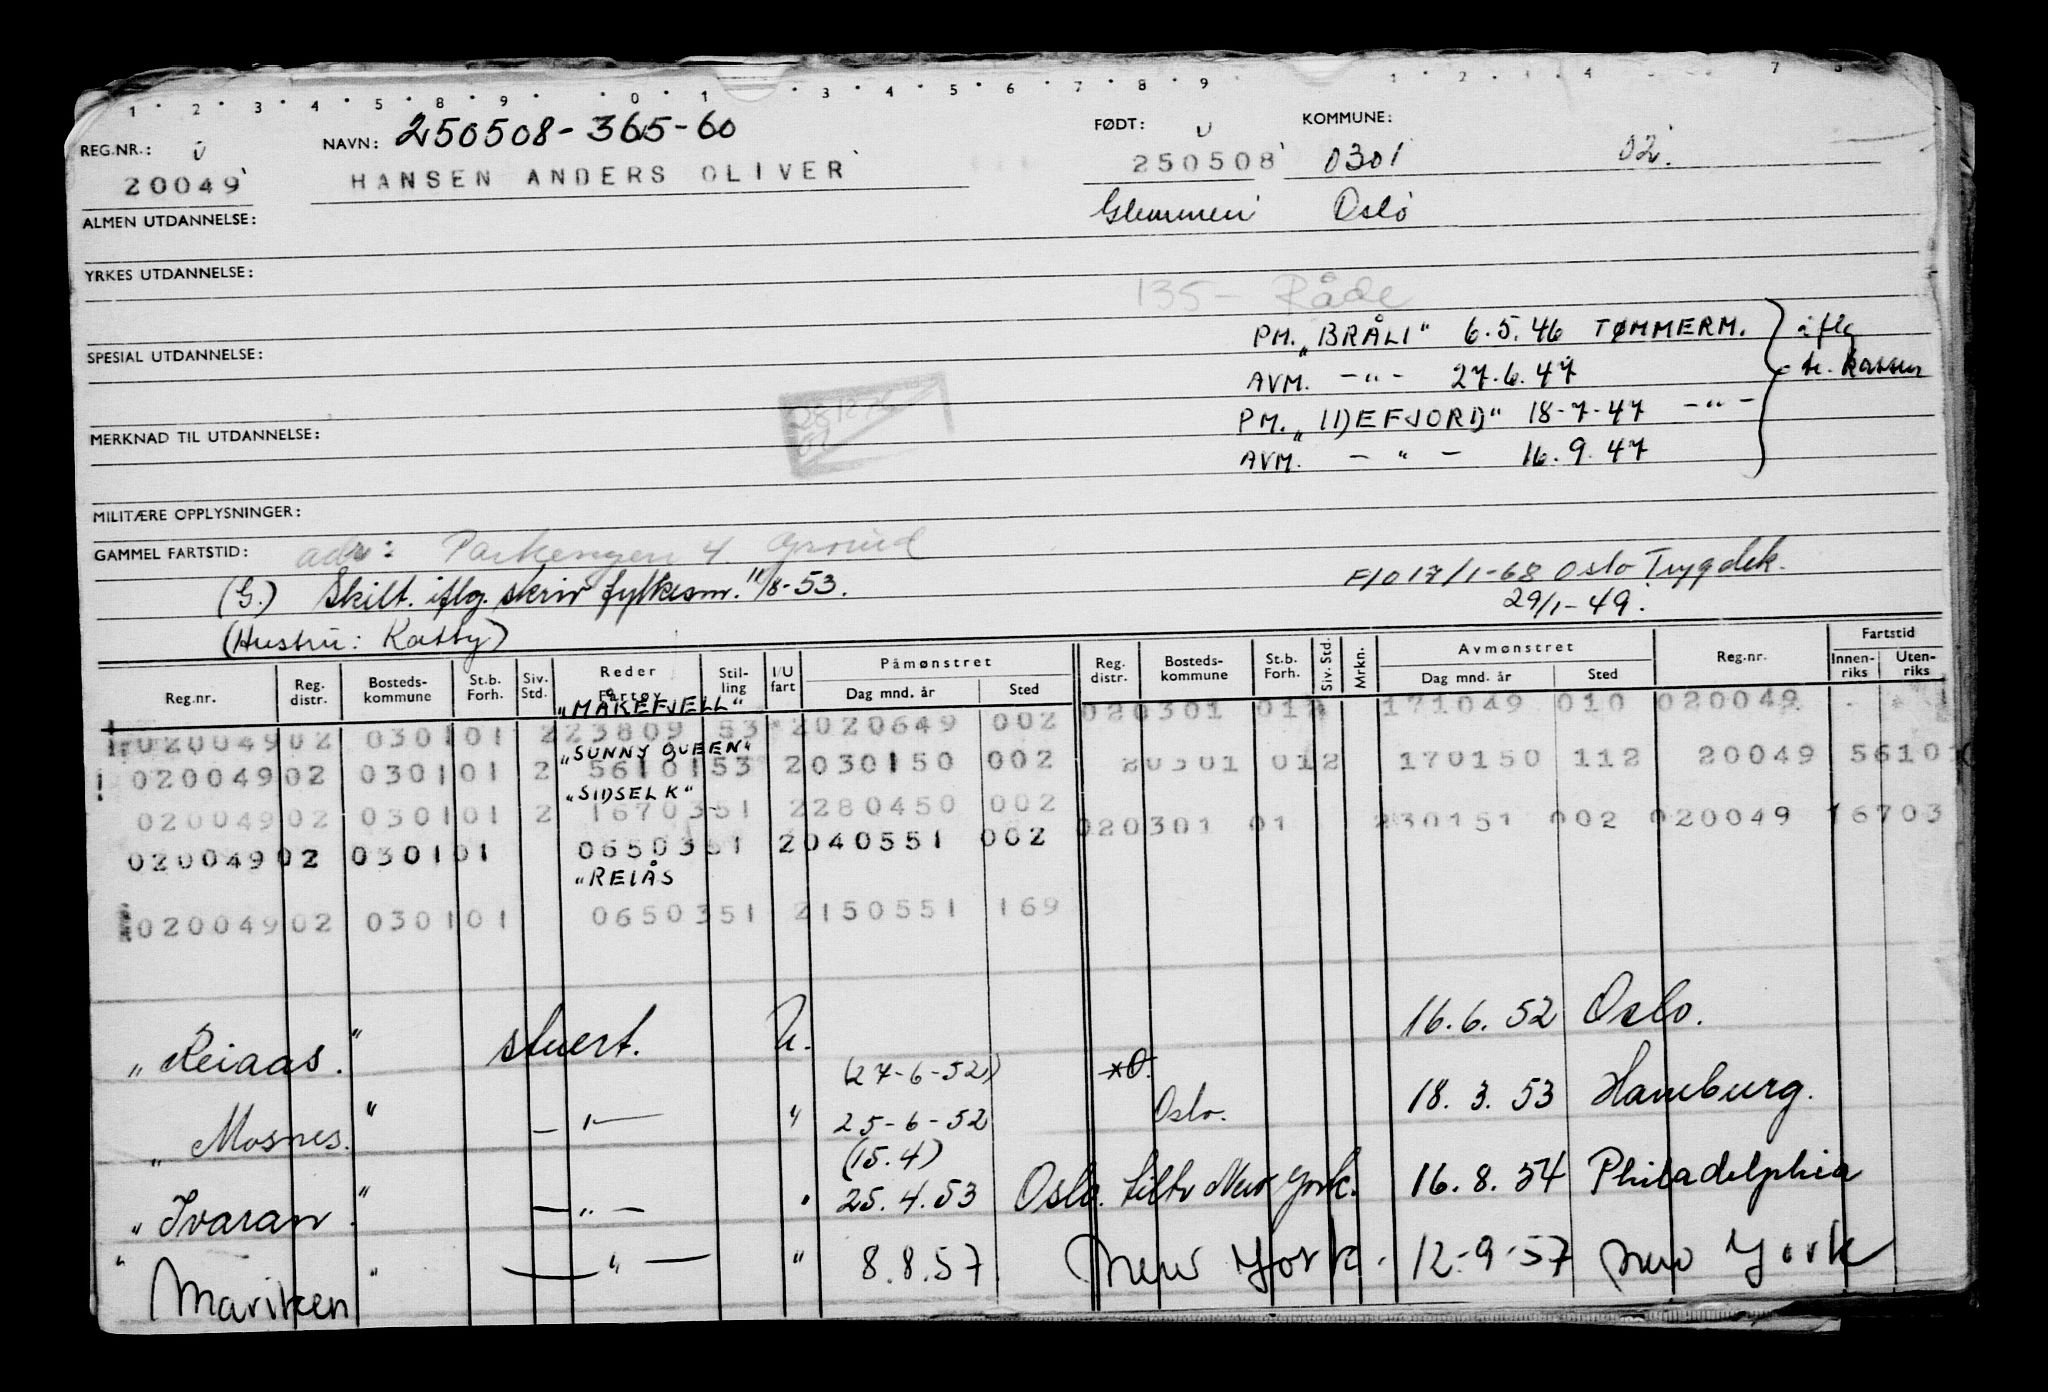 1 · 2 · 3 · 4 · 5 · 8 · 9 · 0 · 1 · 3 · 4 · 5 · 6 · 7 · 8 · 9 · 1 · 2 · 4 7
REG.NR.: NAVN: 250508-365-60 FØDT: KOMMUNE:
20049 HANSEN ANDERS OLIVER 250508 0301 02.
ALMEN UTDANNELSE: Glemmen Oslo
YRKES UTDANNELSE:
135- Råde
PM. „BRÅLI" 6.5.46 TØMMERM. iflg
SPESIAL UTDANNELSE:
AVM. -"- 27.6.47
PM. „IDEFJORD" 18-7-47 -"-
MERKNAD TIL UTDANNELSE:
AVM. - " - 16.9.47
MILITÆRE OPPLYSNINGER:
GAMMEL FARTSTID: adr: Parkengen 4.
(G.) Skilt. iflg. skriv fylkesm. 11/8-53. F/O 17/1-68 Oslo Trygdek.
29/1-49.
(Hustru: Kathy)
Reg.nr. Reg. distr. Bosteds-kommune St.b. Forh. Siv. Std. Reder Fartøy Stil-ling I/U fart Påmønstret Dag mnd. år Sted Reg. distr. Bosteds-kommune St.b. Forh. Siv. Std. Mrkn. Avmønstret Dag mnd. år Sted Reg.nr. Fartstid Innen-riks Uten-riks
„MAKEFJELL"
020049 02 0301 01 2 23809 53 2 020649 002 02 0301 01 2 171049 010 020049
„SUNNY QUEEN"
020049 02 0301 01 2 56101 53 2 030150 002 20301 01 2 170150 112 20049 56101
„SIDSEL K"
020049 02 0301 01 2 16703 51 2 280450 002 02 0301 01 230151 002 020049 16703
020049 02 0301 01 06503 51 2 040551 002
„REIÅS
020049 02 0301 01 06503 51 2 150551 169
„Reiaas." stuert. U. 16.6.52 Oslo.
(27-6-52)
„Mosnes." - " - " 25-6-52 Oslo. 18.3.53 Hamburg.
(15.4)
„Ivaran." - " - " 25.4.53 Oslo. tiltr New York. 16.8.54 Philadelphia
"Mariken" - " - " 8.8.57 New York. 12-9-57 New York